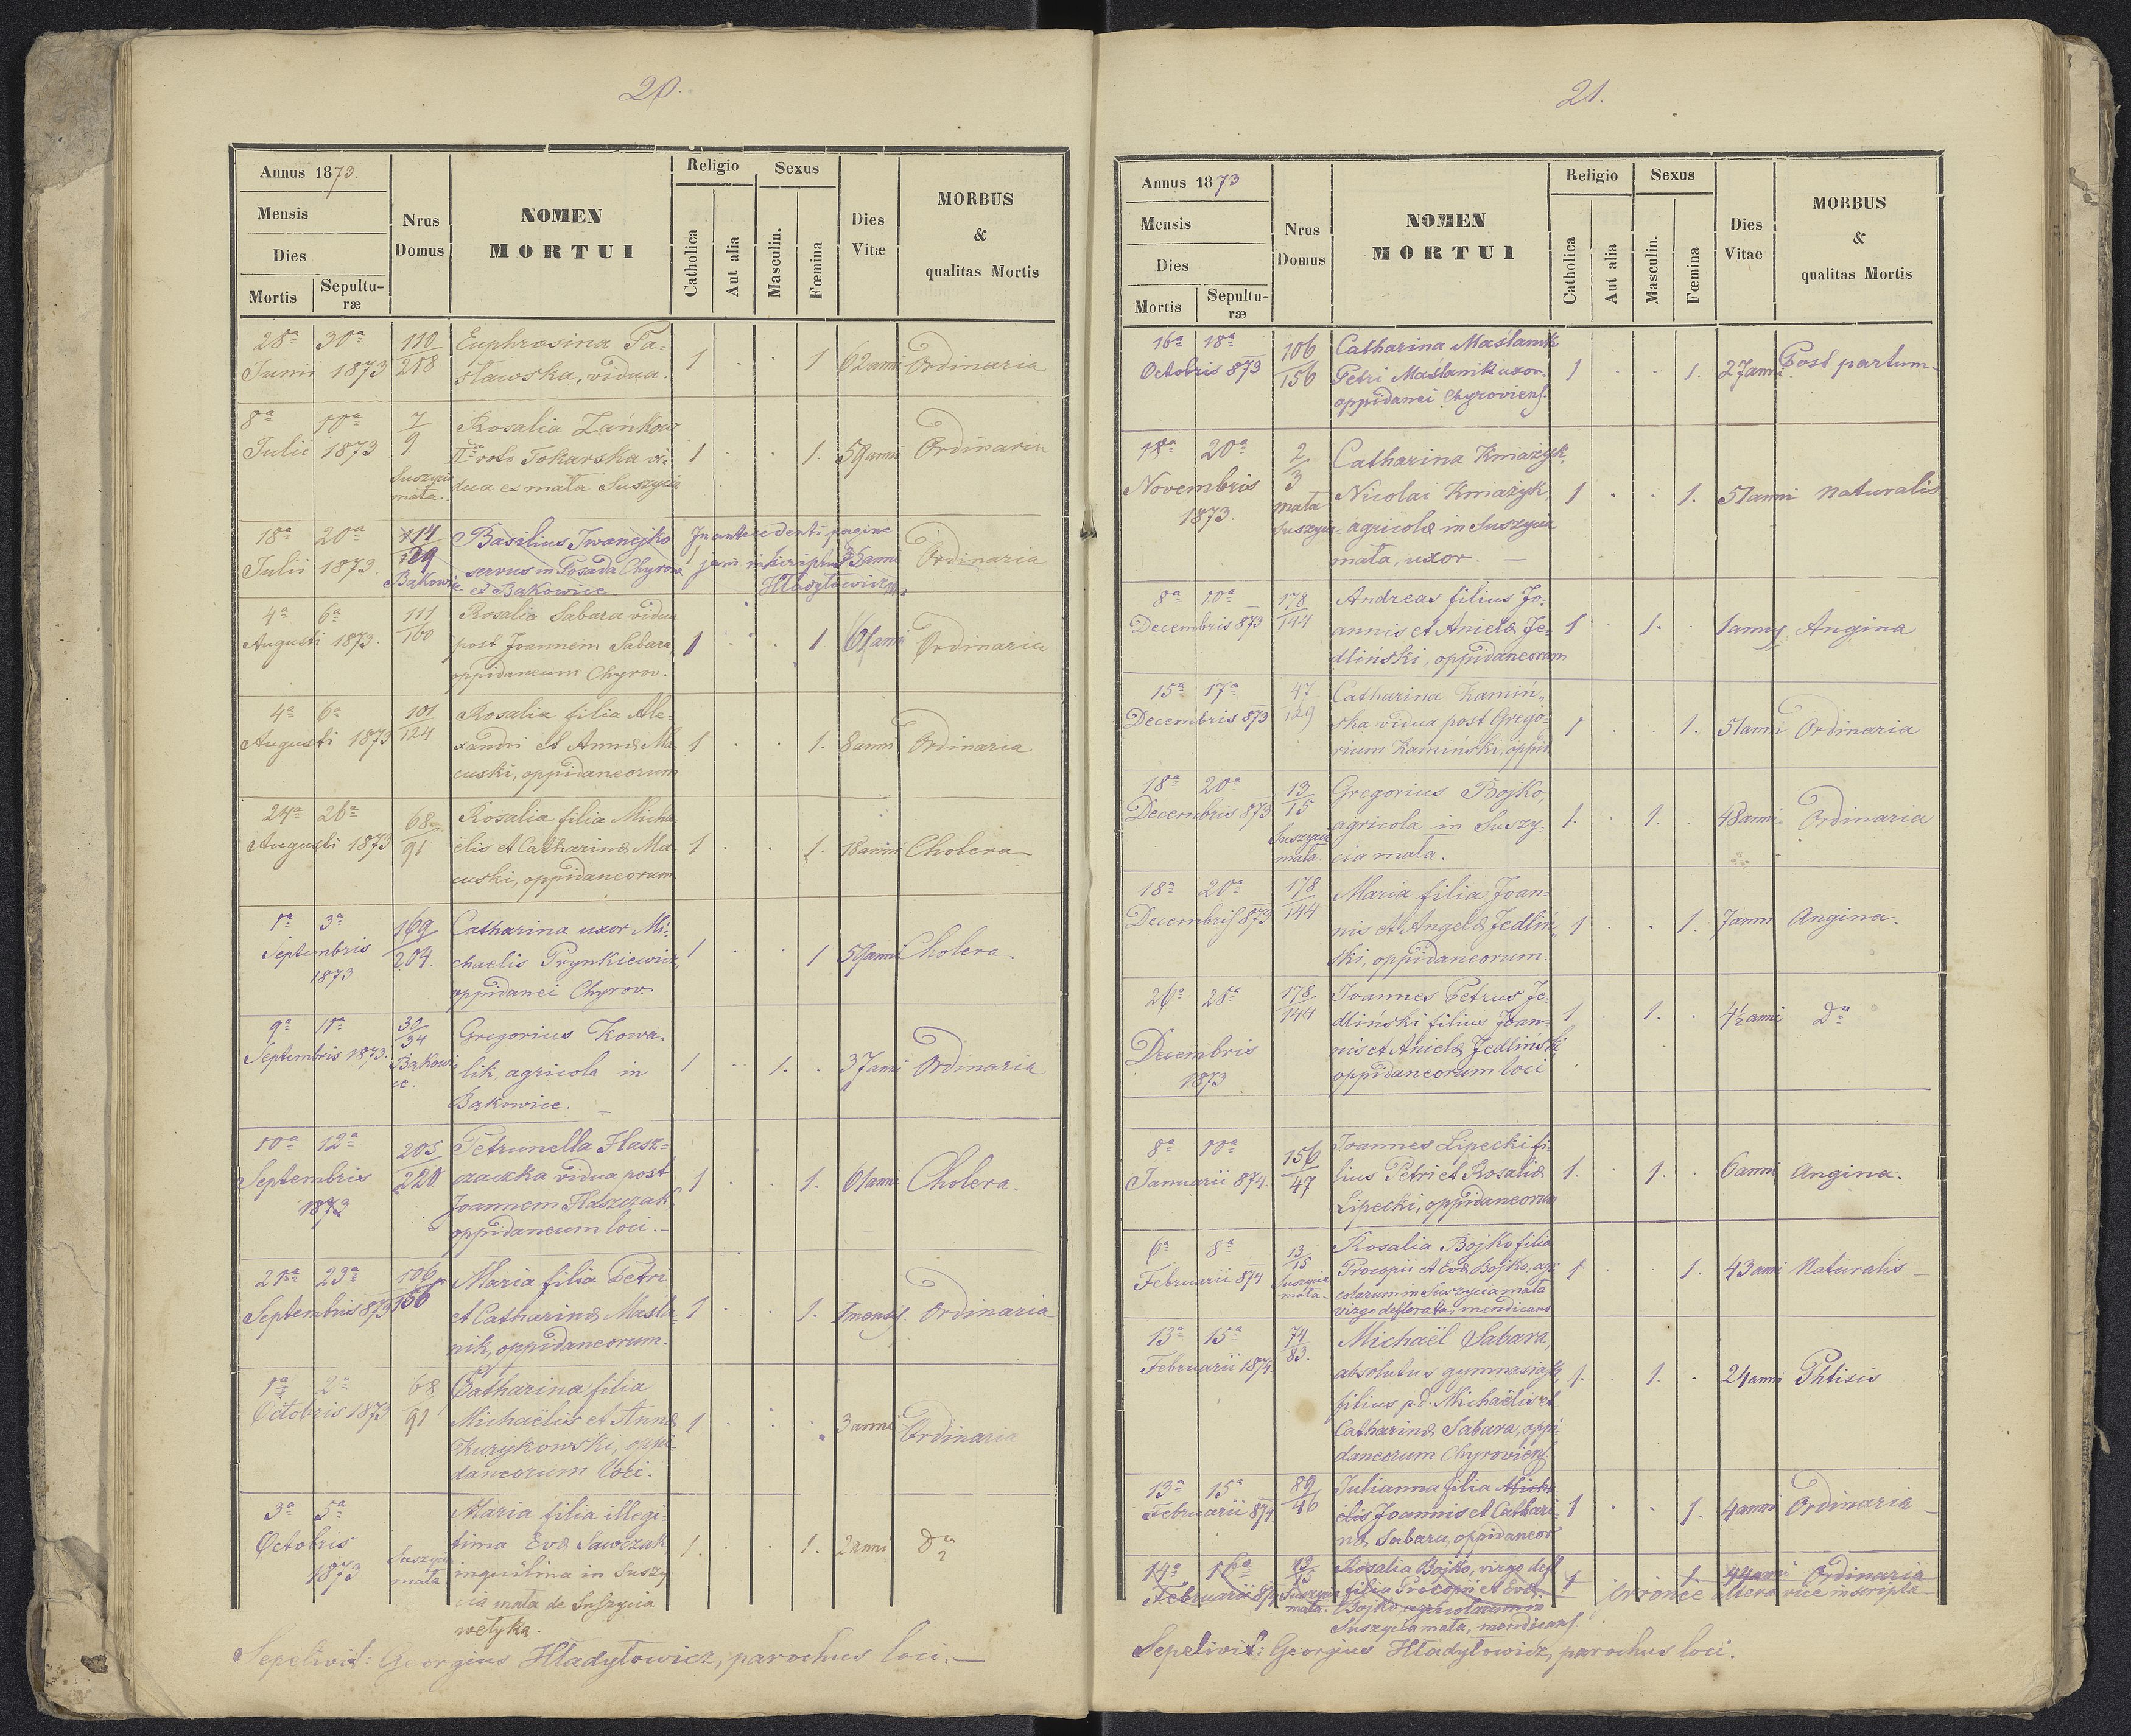 20.
Annus 1873.
Mensis
Dies
Mortis
Sepultu-
ræ
Nrus
Domus
NOMEN
MORTUI
Religio
Catholica
Aut alia
Sexus
Masculin.
Fœmina
Dies
Vitæ
MORBUS
&
qualitas Mortis
28ª 30ª 110 Euphrosina
Junii 1873 218 sławska, vidua. 1 1 62 anni Ordinaria
8ª 10ª 7 Rosalia Zańkow
Julii 1873 9 IIdo voto Tokarska vi- 1 1. anni Ordinaria
Suszyca dua ex mała Suszyca
mała.
18ª 20ª 114 Basilius Iwanejko In antecedenti pagina
Julii 1873. 129 servus in Posada Chyrow 1 jam inscriptus anni Ordinaria
Bąkowice et Bąkowice Hładyłowicz
4ª 6ª 111 Rosalia Sabara vidua
Augusti 1873. 160 post Joannem Sabara 1 1 61 anni Ordinaria
oppidaneum Chyrov.
4ª 6ª 101 Rosalia filia Ale-
Augusti 1873 124 xandri et Annæ Ma- 1 1. 8 anni Ordinaria
cuski, oppidaneorum
24ª 26ª 68 Rosalia filia Micha-
Augusti 1873 91 ëlis et Catharinæ Ma- 1 1. 18 anni Cholera
cuski, oppidaneorum
1ª 3ª 169 Catharina uxor Mi-
Septembris 204. chaelis Prynkiewicz, 1 1 59 anni Cholera.
1873 oppidanei Chyrov.
9ª 11ª 30 Gregorius Kowa-
Septembris 1873. 34 lik, agricola in 1 1. 37 anni Ordinaria
Bąkowi- Bąkowice.
ce.
10ª 12ª 205 Petrunella Hasz-
Septembris 220 czaczka vidua post 1 1. 61 anni Cholera.
1873 Joannem Haszczak,
oppidaneum loci.
21ª 23ª 106 Maria filia Petri
Septembris 873 156 et Catharinæ Maśla- 1 1. 1 mens. Ordinaria
nik, oppidaneorum.
1ª 2ª 68 Catharina filia
Octobris 1873 91 Michaëlis et Annæ 1 3 anni Ordinaria
Kuzykowski, oppi-
daneorum loci.
3ª 5ª Maria filia illegi-
Octobris tima Evæ Sawczak 1. 1. 2 anni Dto
1873 Suszyca inquilina in Suszy-
mała cia mała de Suszycia
wełyka.
Sepelivit: Georgius Hładyłowicz, parochus loci.
21.
Annus 1873
Mensis
Dies
Mortis
Sepultu-
ræ
Nrus
Domus
NOMEN
MORTUI
Religio
Catholica
Aut alia
Sexus
Masculin.
Fœmina
Dies
Vitae
MORBUS
&
qualitas Mortis
16ª 18ª 106 Catharina Maślanik
Octobris 873 156 Petri Maślanik uxor. 1 1. 27 anni Post partum
oppidanei Chyroviens.
18ª 20ª 2 Catharina Kniażyk,
Novembris 3 Nicolai Kniażyk, 1 1. 51 anni naturalis
1873. mała agricolæ in Suszyca
Suszyca mała, uxor.
8ª 10ª 178 Andreas filius Jo-
Decembris 873 144 annis et Anielæ Je- 1 1. 1 annus Angina
dliński, oppidaneorum
15ª 17ª 47 Catharina Kamiń-
Decembris 873 129 ska vidua post Grego- 1 1. 51 anni Ordinaria
rium Kamiński, oppid.
18ª 20ª 13 Gregorius Bojko,
Decembris 873 15 agricola in Suszy- 1. 1. 48 anni Ordinaria
Suszycia cia mała.
mała.
18ª 20ª 178 Maria filia Joan-
Decembris 873 144 nis et Angelæ Jedliń- 1 1. 7 anni Angina.
ski, oppidaneorum.
26ª 28ª 178 Joannes Petrus Je-
144 dliński filius Joan- 1 1. 4½ anni Dto
Decembris nis et Anielæ Jedliński,
1873 oppidaneorum loci
8ª 10ª 156 Joannes Lipecki fi-
Januarii 874. 47 lius Petri et Rosaliæ 1. 1. 6 anni Angina.
Lipecki, oppidaneorum
6ª 8ª 13 Rosalia Bojko filia
Februarii 874 15 Procopii et Evæ Bojko, agri- 1 1. 43 anni Naturalis
Suszycia colarum in Suszycia mała
mała. virgo deflorata, mendicans
13ª 15ª 74 Michaël Sabara,
Februarii 1874. 83. absolutus gymnasialis, 1. 1. 24 anni Phtisis
filius p.d. Michaëlis et
Catharinæ Sabara, oppi-
daneorum Chyroviens.
13ª 15ª 89 Julianna filia Micha
Februarii 874 46 ëlis Joannis et Cathari- 1 1. 4 anni Ordinaria
næ Sabara, oppidaneor
14ª 16ª 13 Rosalia Bojko, virgo defl. 1. 44 anni Ordinaria
Februarii 874 15 filia Procopii et Evæ 1 erronee altera vice inscripta
Suszycia Bojko agricolarum in
mała. Suszycia mała, mendicans.
Sepelivit: Georgius Hładyłowicz, parochus loci.